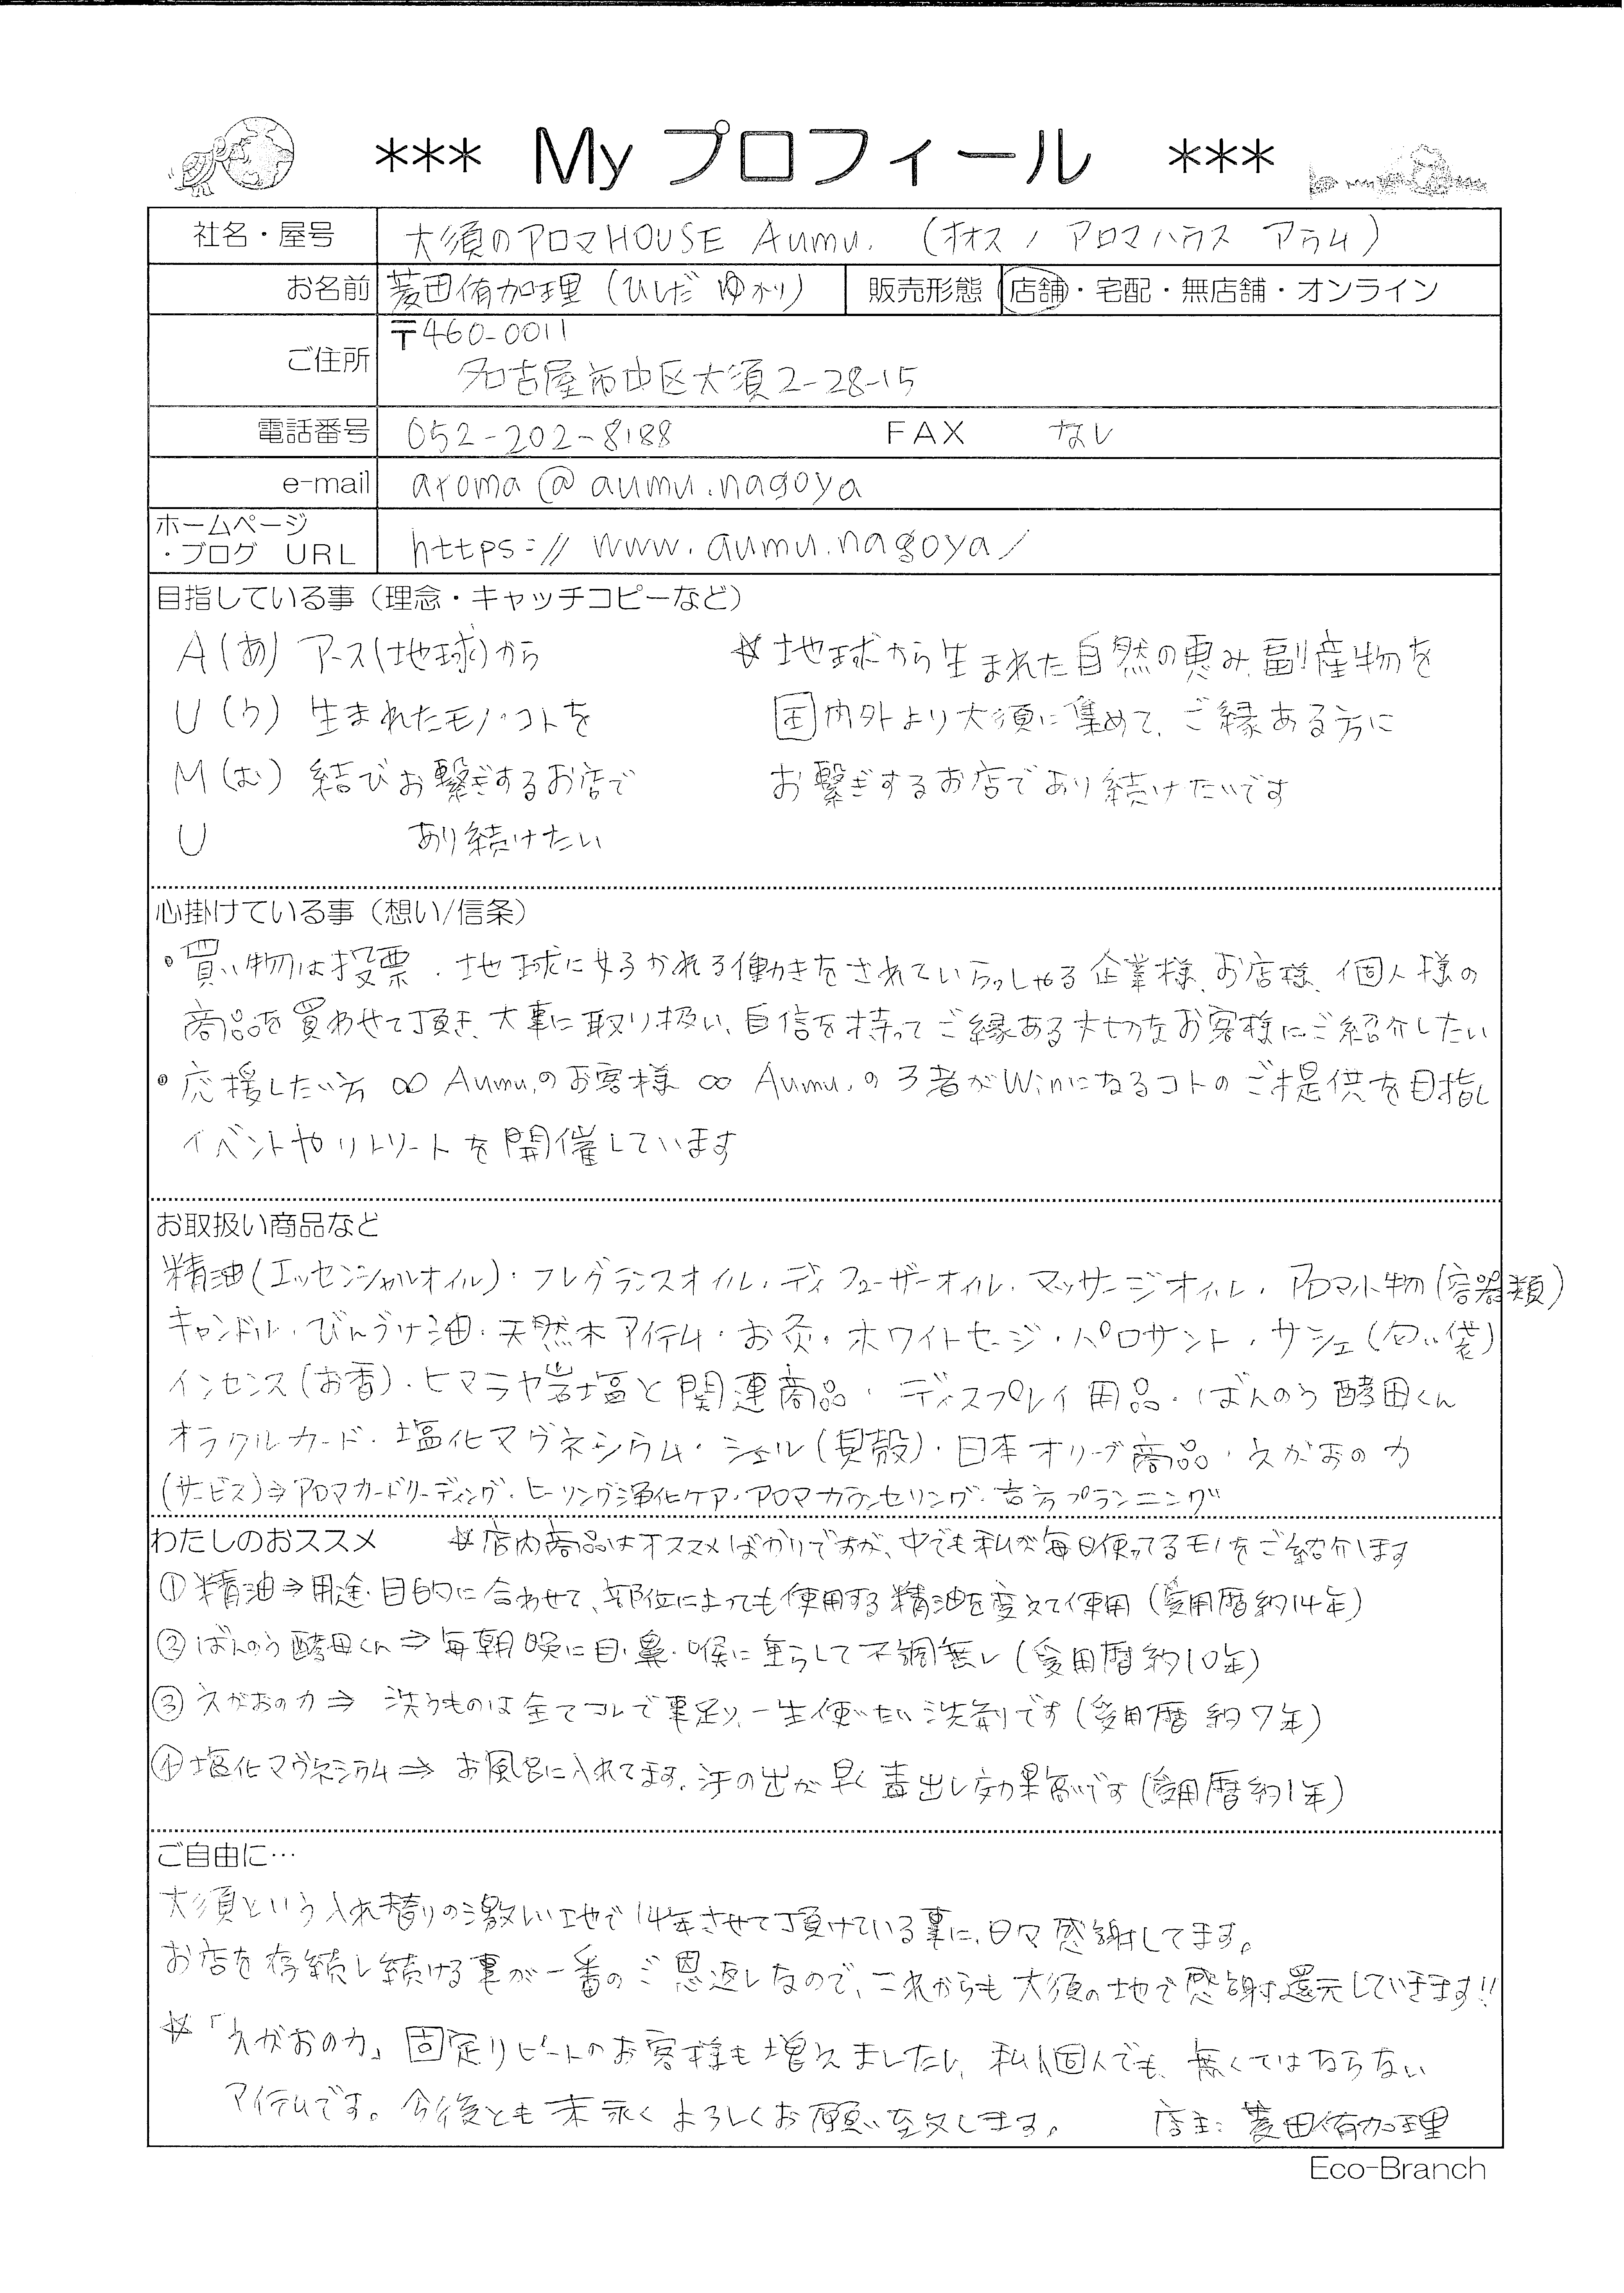 *** My プロフィール ***
社名・屋号 大須のアロマHOUSE Aumu. (オオス ノ アロマハウス アウム)
お名前 菱田侑加理 (ひしだ ゆかり) 販売形態 店舗・宅配・無店舗・オンライン
ご住所 〒460-0011
名古屋市中区大須2-28-15
電話番号 052-202-8188 FAX なし
e-mail aroma@aumu.nagoya
ホームページ
・ブログ URL https://www.aumu.nagoya/
目指している事（理念・キャッチコピーなど）
A(あ) アース(地球)から
U(う) 生まれたモノ・コトを
M(む) 結びお繋ぎするお店で
U あり続けたい
* 地球から生まれた自然の恵み、副産物を
国内外より大須に集めて、ご縁ある方に
お繋ぎするお店であり続けたいです
心掛けている事（想い/信条）
• 買い物は投票。地球に好かれる働きをされていらっしゃる企業様、お店様、個人様の
商品を買わせて頂き、大事に取り扱い、自信を持ってご縁ある大切なお客様にご紹介したい
• 応援したい方 ∞ Aumu.のお客様 ∞ Aumu.の3者がWinになるコトのご提供を目指し
イベントやリトリートを開催しています
お取扱い商品など
精油(エッセンシャルオイル)・フレグランスオイル・ディフューザーオイル・マッサージオイル・アロマ小物(容器類)
キャンドル・びんつけ油・天然木アイテム・お灸・ホワイトセージ・パロサント・サシェ(匂い袋)
インセンス(お香)・ヒマラヤ岩塩と関連商品・ディスプレイ用品・ばんのう酵母くん
オラクルカード・塩化マグネシウム・シェル(貝殻)・日本オリーブ商品・えがおの力
(サービス)⇒アロマカードリーディング・ヒーリング浄化ケア・アロマカウンセリング・香りプランニング
わたしのおススメ * 店内商品はオススメばかりですが、中でも私が毎日使ってるモノをご紹介します
① 精油⇒用途・目的に合わせて、部位によっても使用する精油を変えて使用 (愛用暦約14年)
② ばんのう酵母くん⇒毎朝晩に目・鼻・喉に垂らして不調無し (愛用暦約10年)
③ えがおの力⇒ 洗うものは全てコレで事足り、一生使いたい洗剤です (愛用暦 約7年)
④ 塩化マグネシウム⇒ お風呂に入れてます。汗の出が早く毒出し効果高いです (愛用暦約1年)
ご自由に…
大須という入れ替りの激しい土地で14年させて頂けている事に、日々感謝してます。
お店を存続し続ける事が一番のご恩返しなので、これからも大須の地で感謝還元していきます!!
* 「えがおの力」固定リピートのお客様も増えましたし、私個人でも、無くてはならない
アイテムです。今後とも末永くよろしくお願い致します。 店主: 菱田侑加理
Eco-Branch